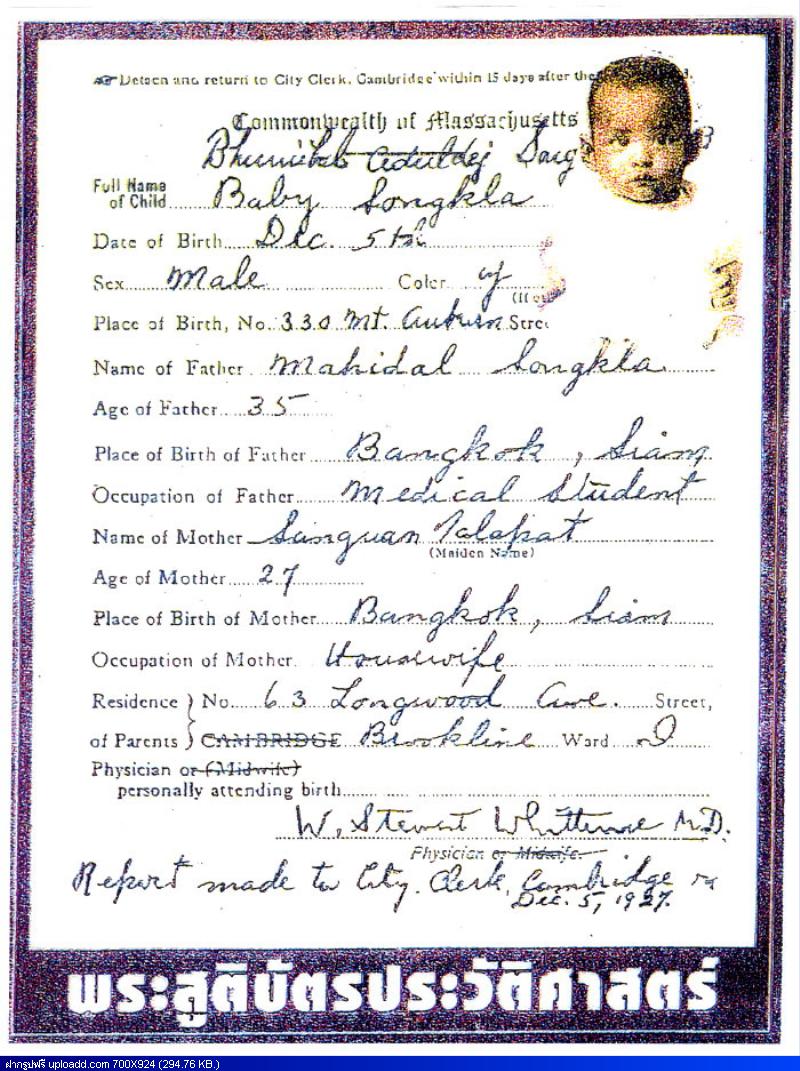 Detach and return to City Clerk, Cambridge within 15 days after the
Commonwealth of Massachusetts
Bhumibol Aduldej Song
Full Name
of Child Baby Songkla
Date of Birth Dec. 5th
Sex Male Color y
Place of Birth, No. 330 Mt. Auburn Stree
Name of Father Mahidal Songkla
Age of Father 35
Place of Birth of Father Bangkok, Siam
Occupation of Father Medical Student
Name of Mother Sanguan Talapat
(Maiden Name)
Age of Mother 27
Place of Birth of Mother Bangkok, Siam
Occupation of Mother Housewife
Residence No. 63 Longwood Ave. Street,
of Parents CAMBRIDGE Brookline Ward
Physician or (Midwife)
personally attending birth
W. Stewart Whittemore M.D.
Physician or Midwife.
Report made to City Clerk, Cambridge
Dec. 5, 1927.
พระสูติบัตรประวัติศาสตร์
ฝากรูปฟรี uploadd.com 700X924 (294.76 KB.)